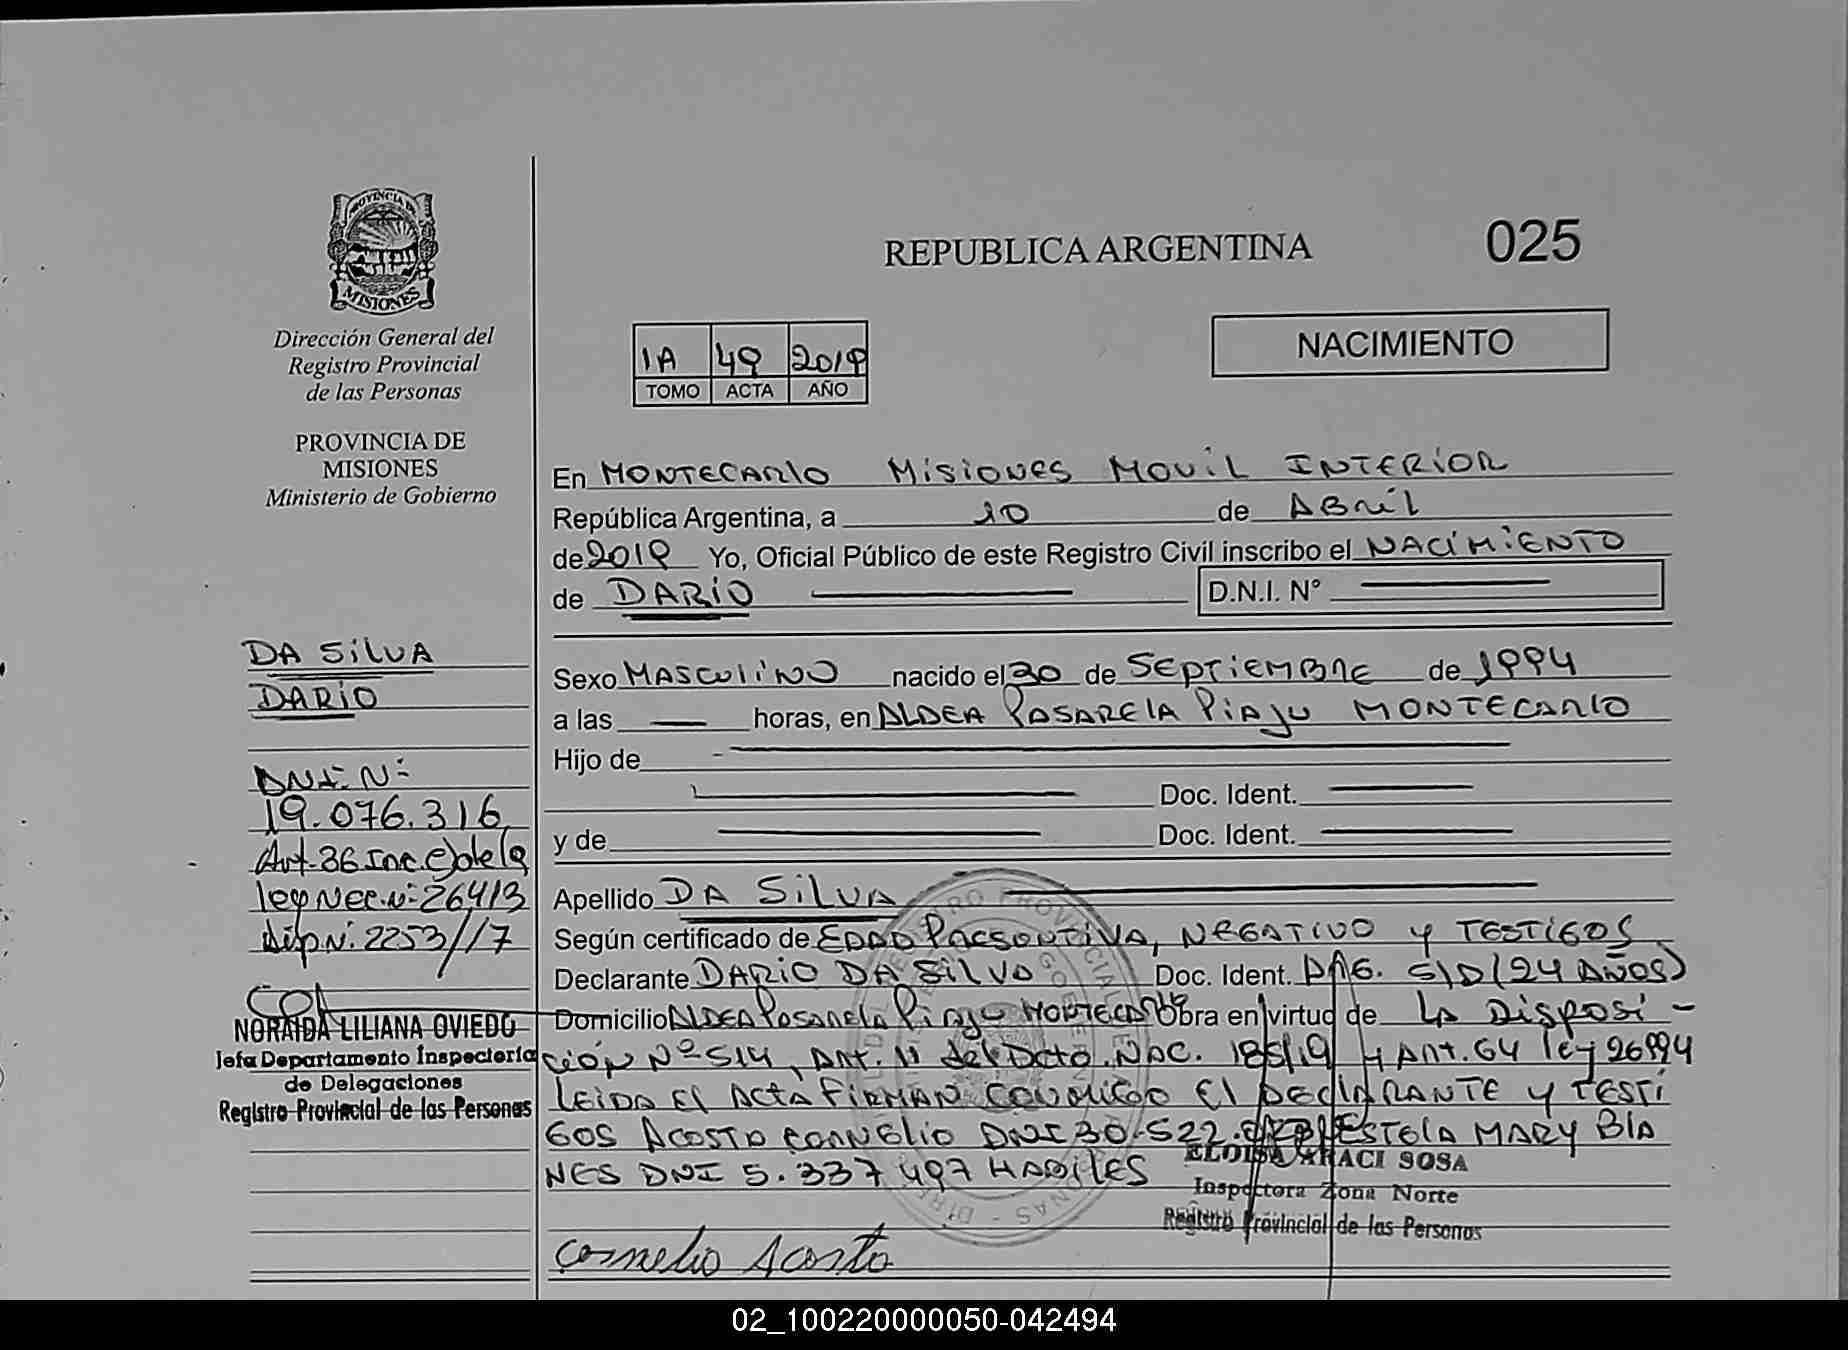 PROVINCIA DE
MISIONES
Dirección General del
Registro Provincial
de las Personas
PROVINCIA DE
MISIONES
Ministerio de Gobierno
REPUBLICA ARGENTINA
025
NACIMIENTO
1A 49 2019
TOMO ACTA AÑO
En MONTECARLO MISIONES MOVIL INTERIOR
República Argentina, a 10 de ABRIL
de 2019 Yo, Oficial Público de este Registro Civil inscribo el NACIMIENTO
de DARIO D.N.I. N°
Sexo MASCULINO nacido el 30 de SEPTIEMBRE de 1994
a las horas, en ALDEA PASARELA PIAJU MONTECARLO
Hijo de
Doc. Ident.
y de Doc. Ident.
Apellido DA SILVA
Según certificado de EDAD PRESUNTIVA, NEGATIVO y TESTIGOS
Declarante DARIO DA SILVA Doc. Ident. S/D (24 AÑOS)
Domicilio ALDEA PASARELA PIAJU MONTECARLO Obra en virtud de LA DISPOSI-
CIÓN Nº 514, ART. 11 del Dcto. NAC. 185/19 y ART. 64 ley 26994
LEIDA EL ACTA FIRMAN CONMIGO EL DECLARANTE y TESTI
GOS ACOSTA CORNELIO DNI 30.522. ESTELA MARY BLA
NES DNI 5.337 497 HABILES
Cornelio Acosta
ELOISA ARACI SOSA
Inspectora Zona Norte
Registro Provincial de las Personas
DA SILVA
DARIO
DNI. N:
19.076.316
Art-36 Inc. e) de la
ley Nac. N: 26413
Disp N: 2253//17
NORAIDA LILIANA OVIEDO
Jefa Departamento Inspectoría
de Delegaciones
Registro Provincial de las Personas
02_100220000050-042494